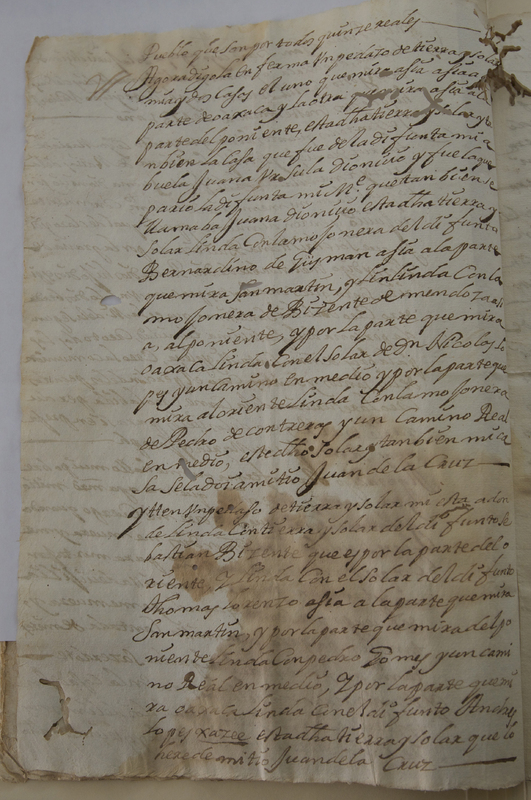 Pueblo que son por todos quinze reales
Ago radigola en ferma Un pedazo de tierra y solar
mui y en Casas el uno que mira asia a
parte de oaxaca y la otra que mira asia a la
parte del poniente, esta dha tierra y solar y ta
nbien la Casa que fue de la difionta mi a
buela Juana Vrsula dionicio y fue la que
pario la difunta mi Me. que tanbien se
llamaba Juana dionicio esta dha tierra y
Solar linda Con la mo jonera del difunto
Bernardino de Gusman asia a la parte
que mira san martin, y linda Con la
mo jonera de Bizente de mendoza asi
a, al poniente, y por la parte que mira
oaxaca linda Con el solar de Dn Nicolas lo
pes y un Camino en medio y por la parte que
mira al oriente linda Con la mo jonera
de Pedro de contreras y un Camino Real
en medio, este dho Solar y tanbien mi ca
sa se la doi a mi tio Juan de la Cruz
ytten Un pedaso de tierra y solar mi sta a don
de linda Con tierra y solar del difunto se
bastian Bizente que es por la parte del o
riente, y linda Con el Solar del difunto
Thomas lorenzo asia a la parte que mira
San martin, y por la parte que mira del po
niente linda Con pedro Gomes y un cami
no Real en medio, y por la parte que mi
ra oaxaca linda Con el difunto Anches
lopes xazee esta dha tierra y solar que lo
herede mi tio Juan de la Cruz